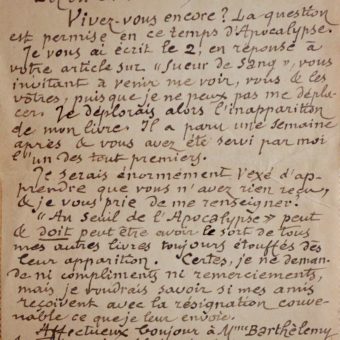 Vivez-vous encore? La question
est permise en ce temps d'Apocalypse.
Je vous ai écrit le 2, en réponse à
votre article sur « Sueur de Sang », vous
invitant à venir me voir, vous & les
vôtres, puisque je ne peux pas me dépla-
cer. Je déplorais alors l'inapparition
de mon livre. Il a paru une semaine
après & vous avez été servi par moi
l'un des tout premiers.
Je serais énormément vexé d'ap-
prendre que vous n'avez rien reçu,
& je vous prie de me renseigner.
"Au Seuil de l'Apocalypse" peut
& doit peut être avoir le sort de tous
mes autres livres toujours étouffés dès
leur apparition. Certes, je ne deman-
de ni compliments ni remerciements,
mais je voudrais savoir si mes amis
reçoivent avec la résignation conve-
nable ce que je leur envoie.
Affectueux bonjour à Mme Barthélemy